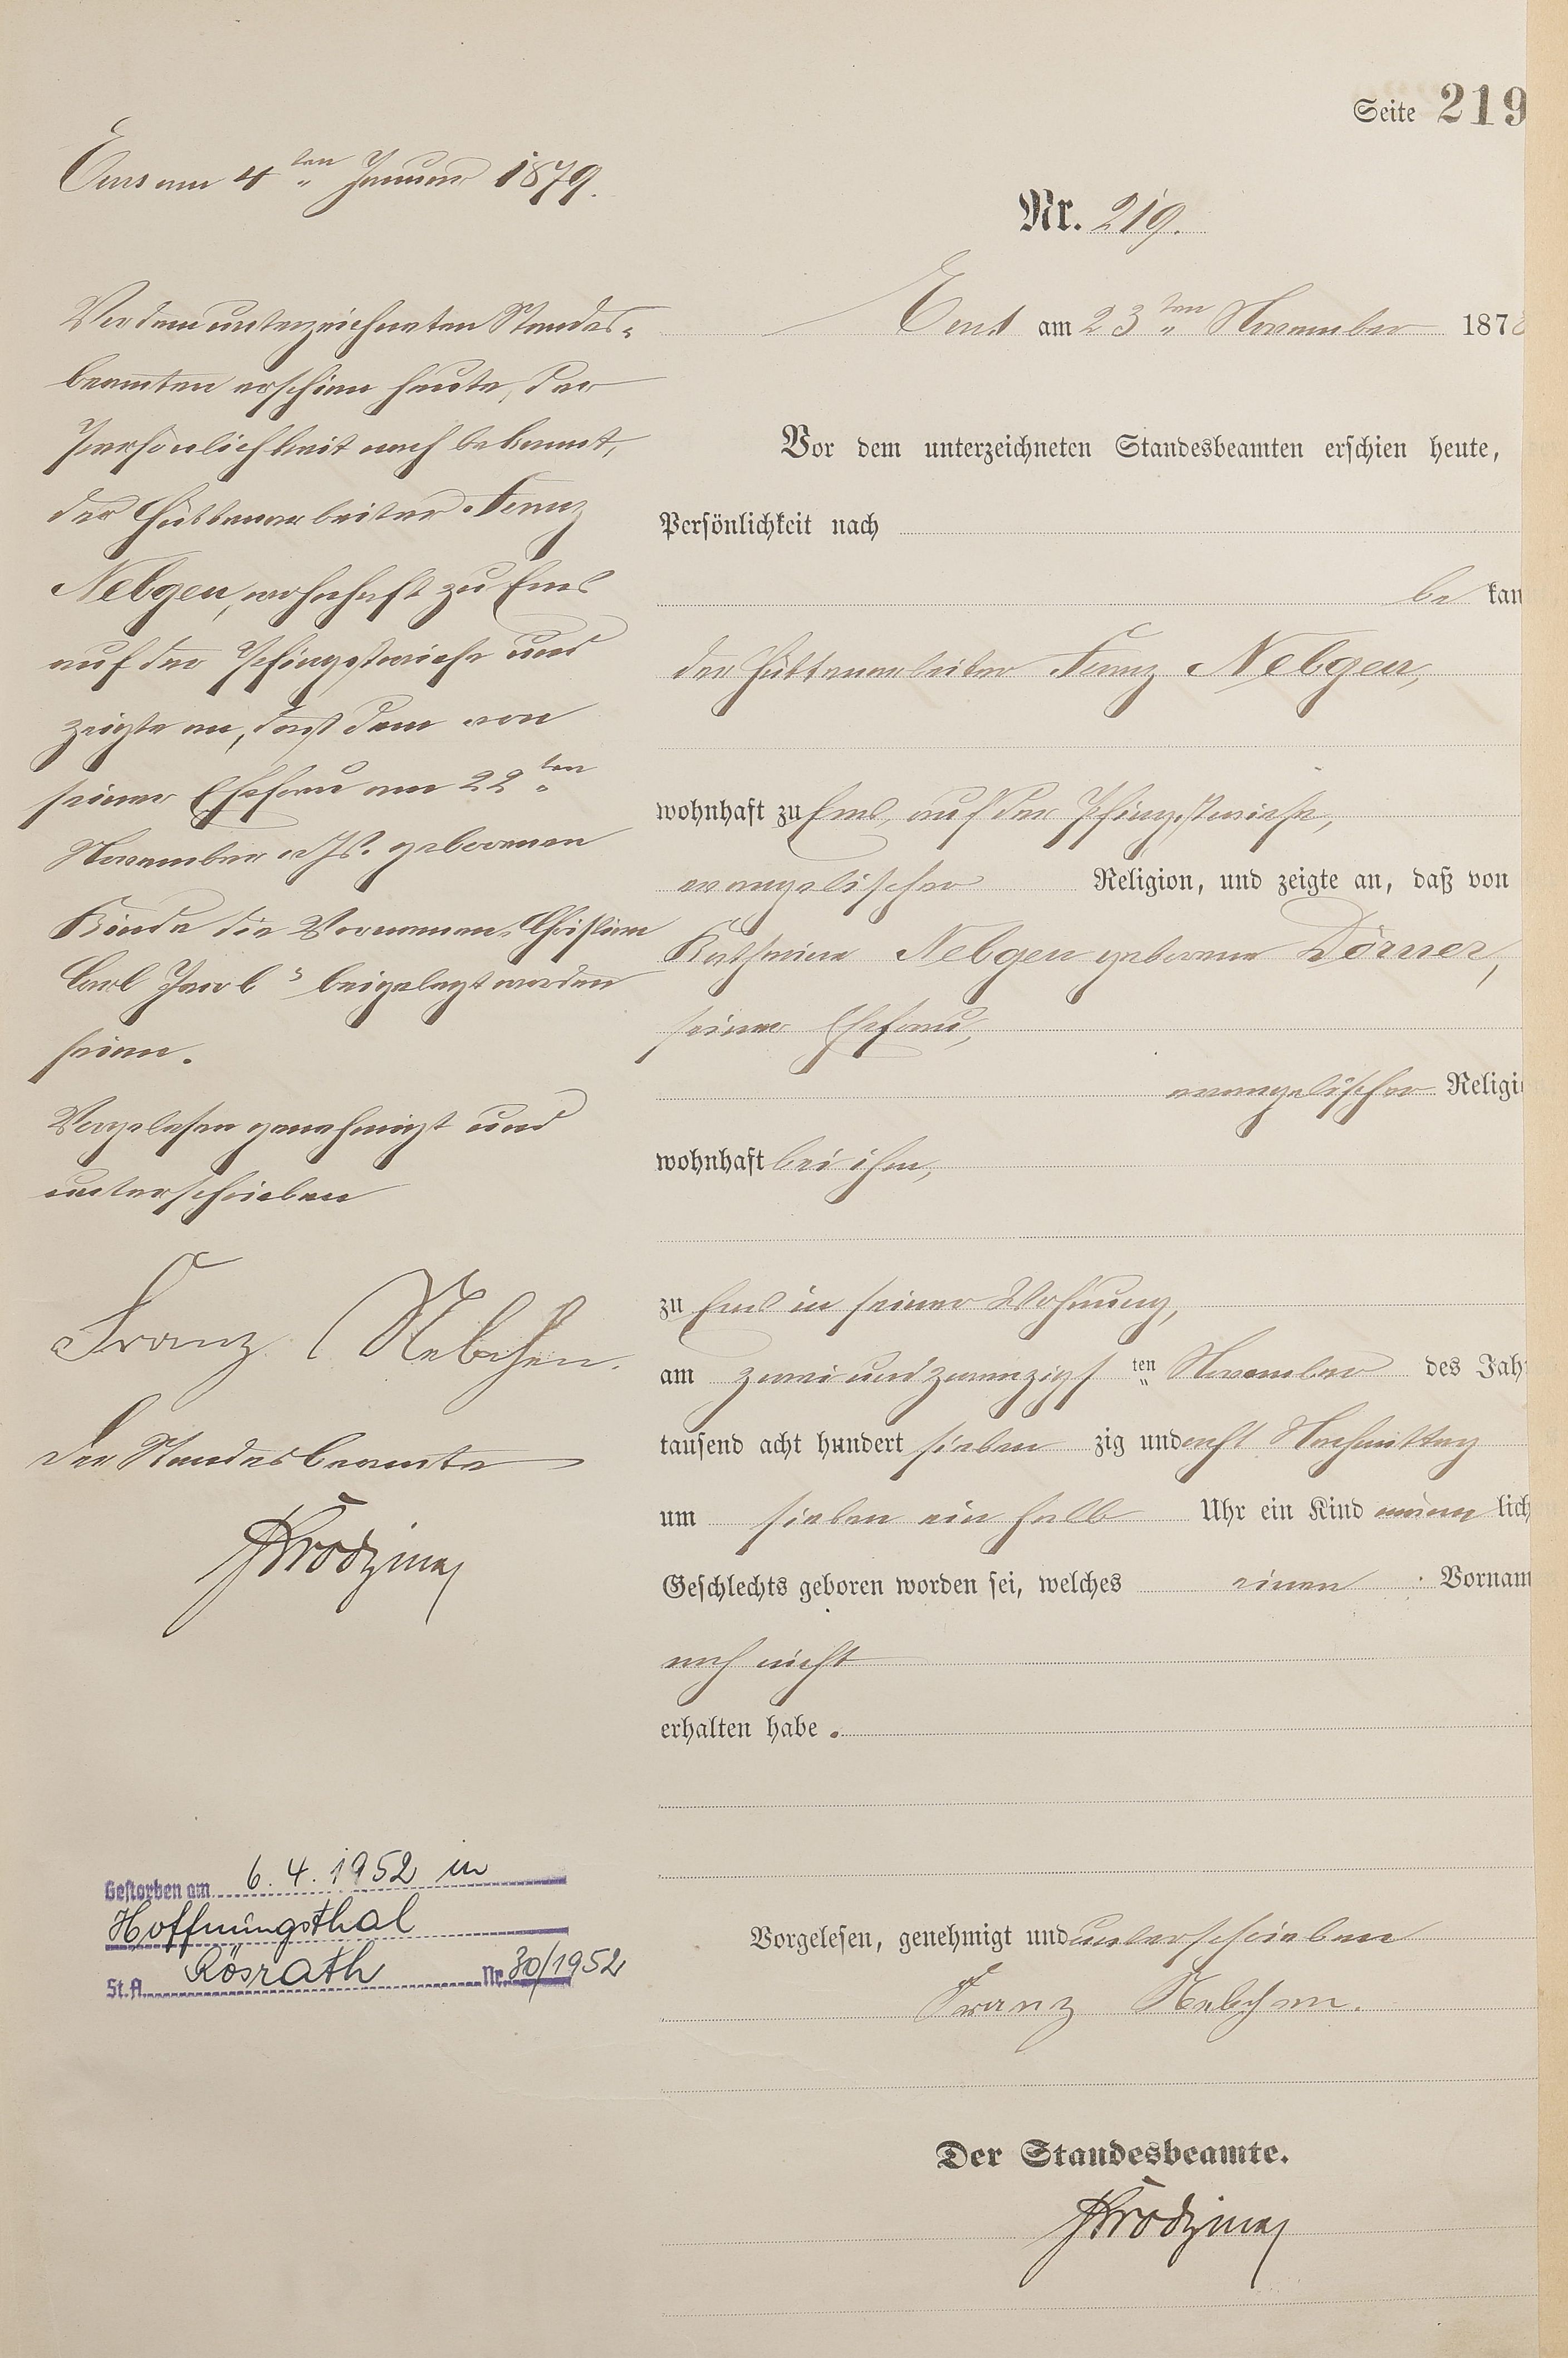 Seite 219
Ems am 4ten Januar 1879.
Vor dem unterzeichneten Standes-
beamten erschien heute, der
Persönlichkeit nach bekannt,
der Hüttenarbeiter Franz
Nebgen, wohnhaft zu Ems
auf der Pfingstwiese und
zeigte an, daß dem von
seiner Ehefrau am 22ten
November v. Js. geborenen
Kinde die Vornamen „Christian
Carl Jacob“ beigelegt worden
seien.
Vorgelesen genehmigt und
unterschrieben
Franz Nebchen.
Der Standesbeamte
Gestorben am 6.4.1952 in
Hoffnungsthal
St.A. Rösrath Nr. 30/1952
Nr. 219.
Ems am 23ten November 1878
Vor dem unterzeichneten Standesbeamten erschien heute,
Persönlichkeit nach
be kan
der Hüttenarbeiter Franz Nebgen,
wohnhaft zu Ems, auf der Pfingstwiese,
evangelischer Religion, und zeigte an, daß von
Katharina Nebgen geborene Dörner,
seiner Ehefrau,
evangelischer Religi
wohnhaft bei ihm,
zu Ems in seiner Wohnung,
am zwei und zwanzigsten November des Jah
tausend acht hundert sieben zig und acht Nachmittag
um sieben ein halb Uhr ein Kind männ lich
Geschlechts geboren worden sei, welches einen Vornam
noch nicht
erhalten habe.
Vorgelesen, genehmigt und unterschrieben
Franz Nebchen.
Der Standesbeamte.